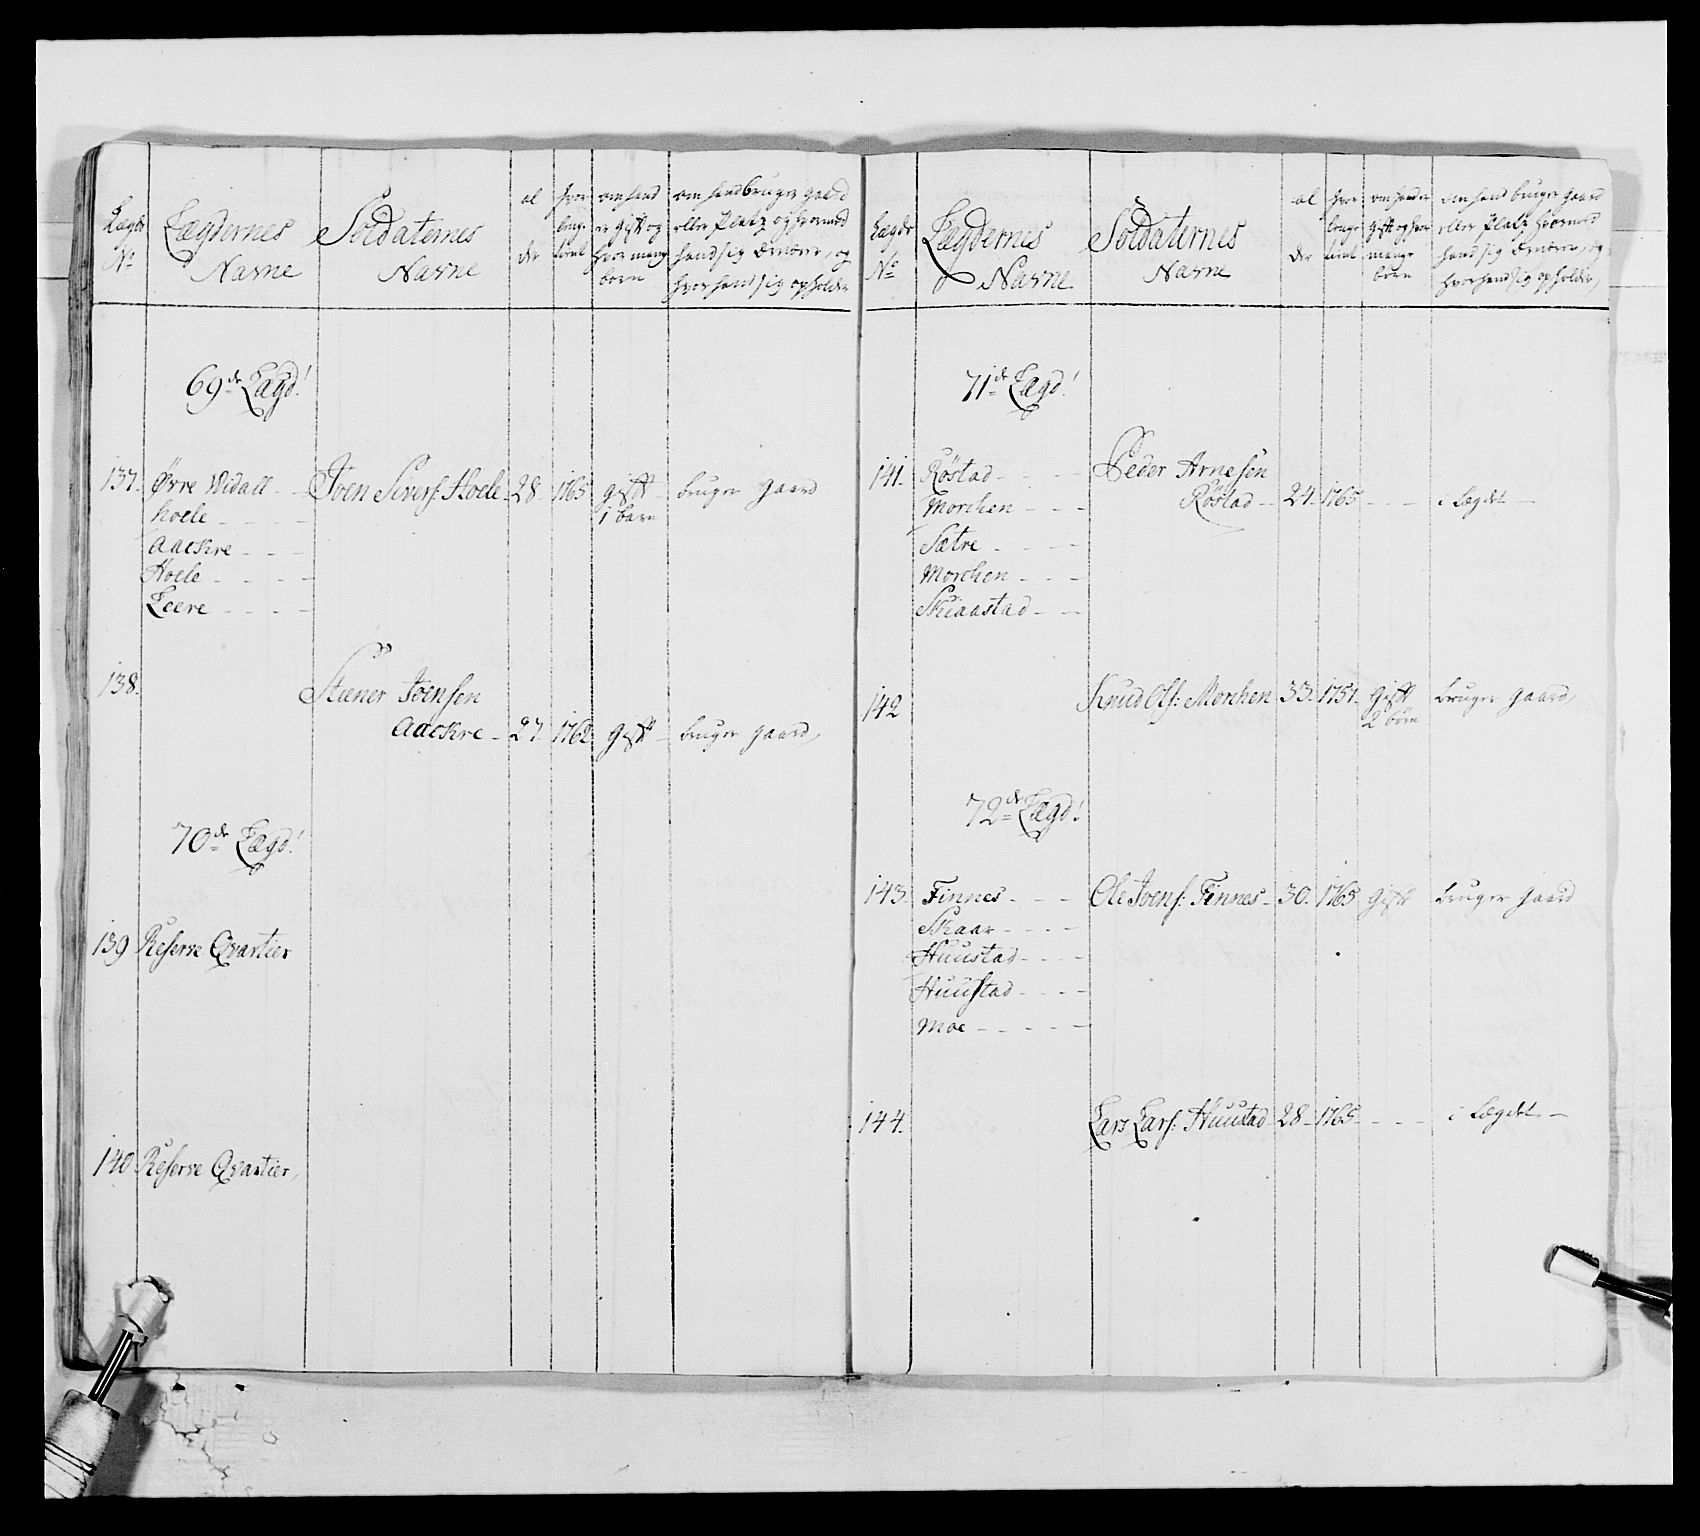 Lægds No
Lægdernes Navne
Soldaternes Navne
al der
hvor længe tient
om hand er gift og hvor mang børn
om hand bruger gaard eller Platz og hvormed hand sig Ernærer, og hvor hand sig opholder
69de Lægd!
137. Øvre Widall - - Joen Sivers: Hoele - 28 1765 gift - bruger gaard
hoele - - - 1 barn
Aackre - - -
Hoele - - - -
Leere - - - -
138. Steener Joensen
Aackre - 27 1762 gift - bruger gaard,
70de Lægd!
139 Reserve Qvartier
140 Reserve Qvartier,
Lægds No
Lægdernes Navne
Soldaternes Navne
al der
hvor længe tient
om hand er gift og hvor mange børn
om hand bruger gaard eller Platz hvormed hand sig Ernærer, og hvor hand sig opholder,
71de Lægd!
141. Röstad - - - Peder Arnesen
Morchen - - - Röstad - - 24. 1765 - - - i Lægdet -
Sætre - - - -
Morchen - - -
Skiaastad - - -
142 Knud Ols: Morchen 33. 1757. gift bruger gaard,
2 börn
72de Lægd!
143. Finnes - - - Ole Joens: Finnes - 30. 1765 gift bruger gaard
Skaar - - - -
Huustad - - - -
Huustad - - - -
Moe - - - - -
144. Lars Lars: Huustad 28 - 1765 - - - - i Lægdet -